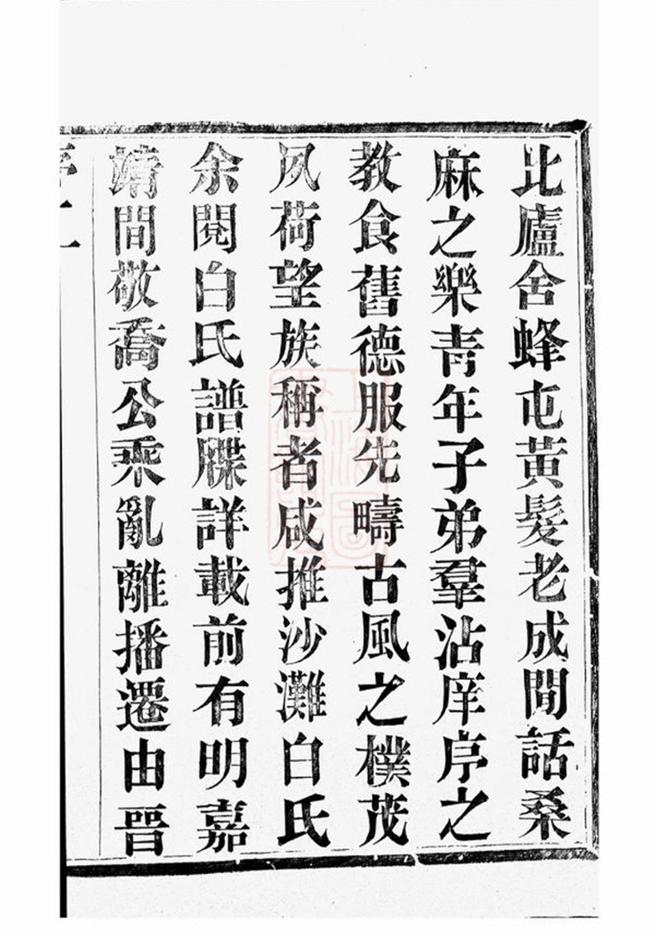 比廬舍蜂屯黃髮老成閒話桑
麻之樂青年子弟羣沾庠序之
教食舊德服先疇古風之樸茂
夙荷望族稱者咸推沙灘白氏
余閱白氏譜牒詳載前有明嘉
靖間敬喬公乘亂離播遷由晉